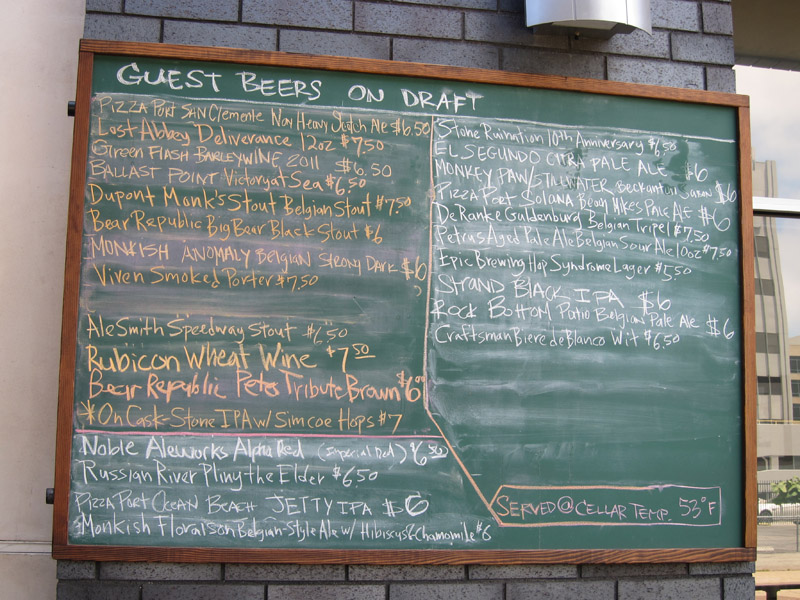 GUEST BEERS ON DRAFT
PIZZA PORT SAN Clemente Non Heavy Scotch Ale $6.50
Lost Abbey Deliverance 12oz $7.50
GREEN FLASH BARLEYWINE 2011 $6.50
BALLAST POINT Victory at Sea $6.50
Dupont Monk's Stout Belgian Stout $7.50
Bear Republic Big Bear Black Stout $6
MONKISH ANOMALY BELGIAN STRONG DARK $6
Viven Smoked Porter $7.50
AleSmith Speedway Stout $6.50
Rubicon Wheat Wine $7.50
Bear Republic Petes Tribute Brown $6
*On Cask-Stone IPA w/ Simcoe Hops $7
Noble Aleworks Alpha Red (Imperial Red) $6.50
Russian River Pliny the Elder $6.50
PIZZA PORT OCEAN BEACH JETTY IPA $6
Monkish Floralson Belgian-Style Ale w/ Hibiscus & Chamomile $6
Stone Ruination 10th Anniversary $6.50
EL SEGUNDO CITRA PALE ALE $6
MONKEY PAW/STILLWATER BECKANTON SAISON $6
Pizza Port Solana Beach Mikes Pale Ale $6
De Ranke Guldenburg Belgian Tripel $7.50
Petrus Aged Pale Ale Belgian Sour Ale 10oz $7.50
Epic Brewing Hop Syndrome Lager $5.50
STRAND BLACK IPA $6
ROCK BOTTOM Patio Belgian Pale Ale $6
Craftsman Biere de Blanco Wit $6.50
SERVED @ CELLAR TEMP. 53°F